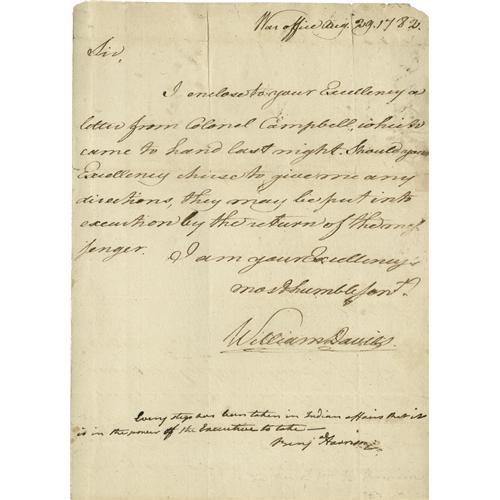 War office Aug. 29. 1782.
Sir,
I enclose to your Excellency a
letter from Colonel Campbell, which
came to hand last night. Should your
Excellency chuse to give me any
directions, they may be put into
execution by the return of the mes
senger.
I am your Excellency's
most humble servt.
William Davies.
Every step has been taken in Indian affairs that it
is in the power of the Executive to take —
Benj Harrison